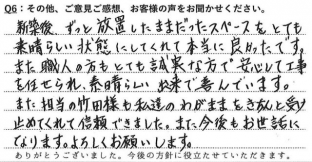 Q6：その他、ご意見ご感想、お客様の声をお聞かせください。
新築後、ずっと放置したままだったスペースをとても
素晴らしい状態にしてくれて本当に良かったです。
また職人の方もとても誠実な方で安心して工事
を任せられ、素晴らしい出来で喜んでいます。
また担当の竹田様も私達のわがままをきちんと受け
止めてくれて信頼できました。また今後もお世話に
なります。よろしくお願いします。
ありがとうございました。今後の方針に役立たせていただきます。